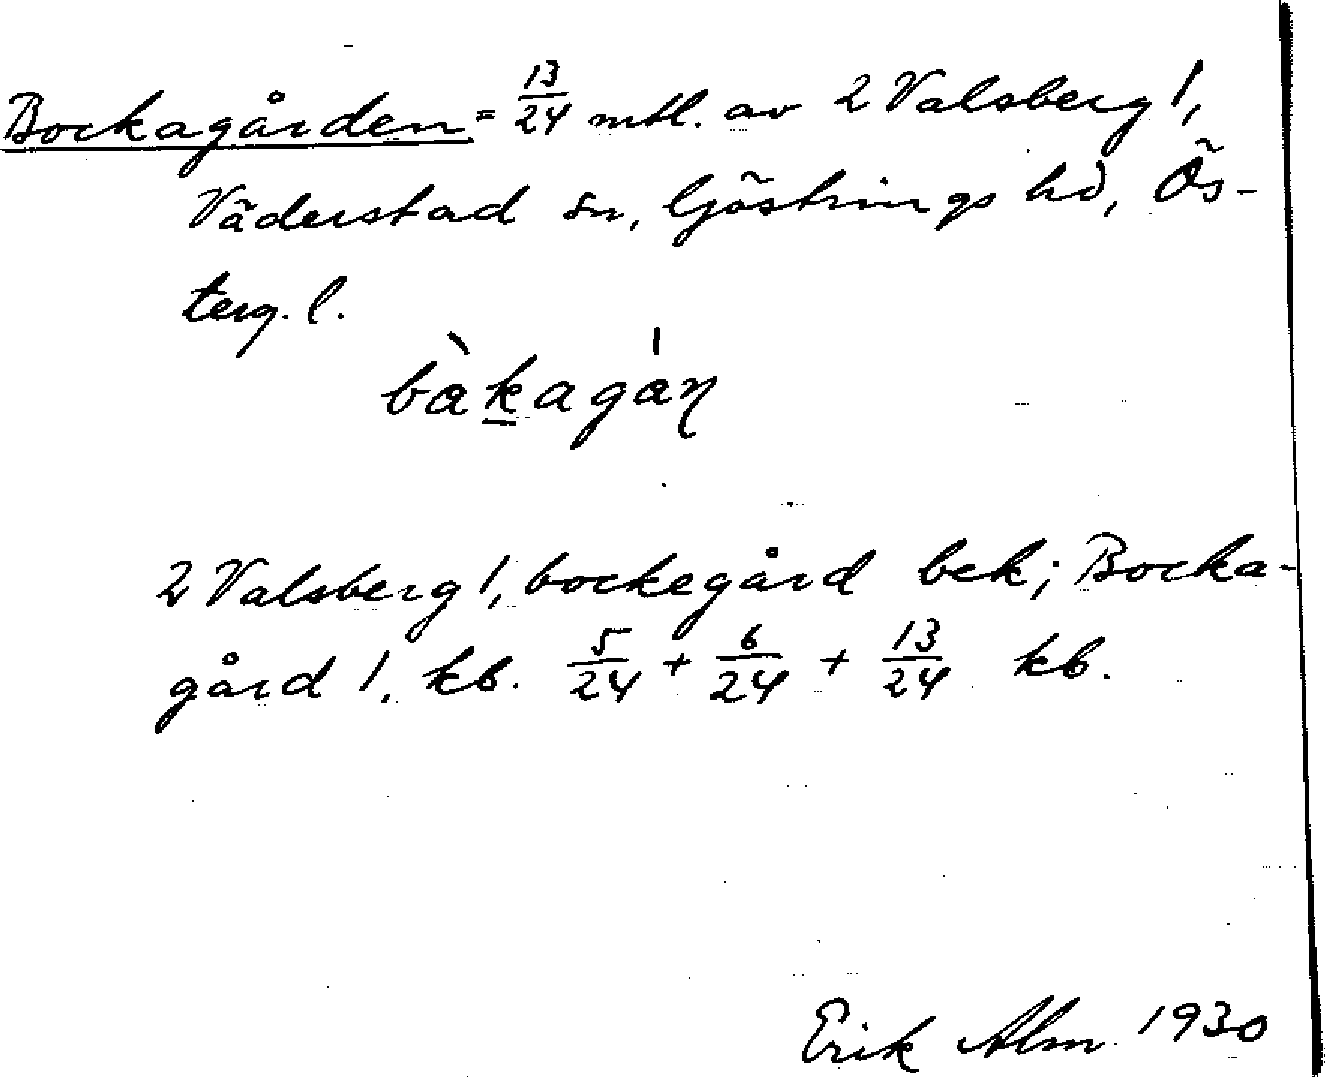 Bockagården = 13/24 mtl. av 2 Valsberg 1,
Väderstad sn, Göstrings hd, Ös-
terg. l.
bàkagáɳ
2 Valsberg 1, bockegård bek; Bocka-
gård 1, kb. 5/24 + 6/24 + 13/24 kb.
Erik Alm 1930